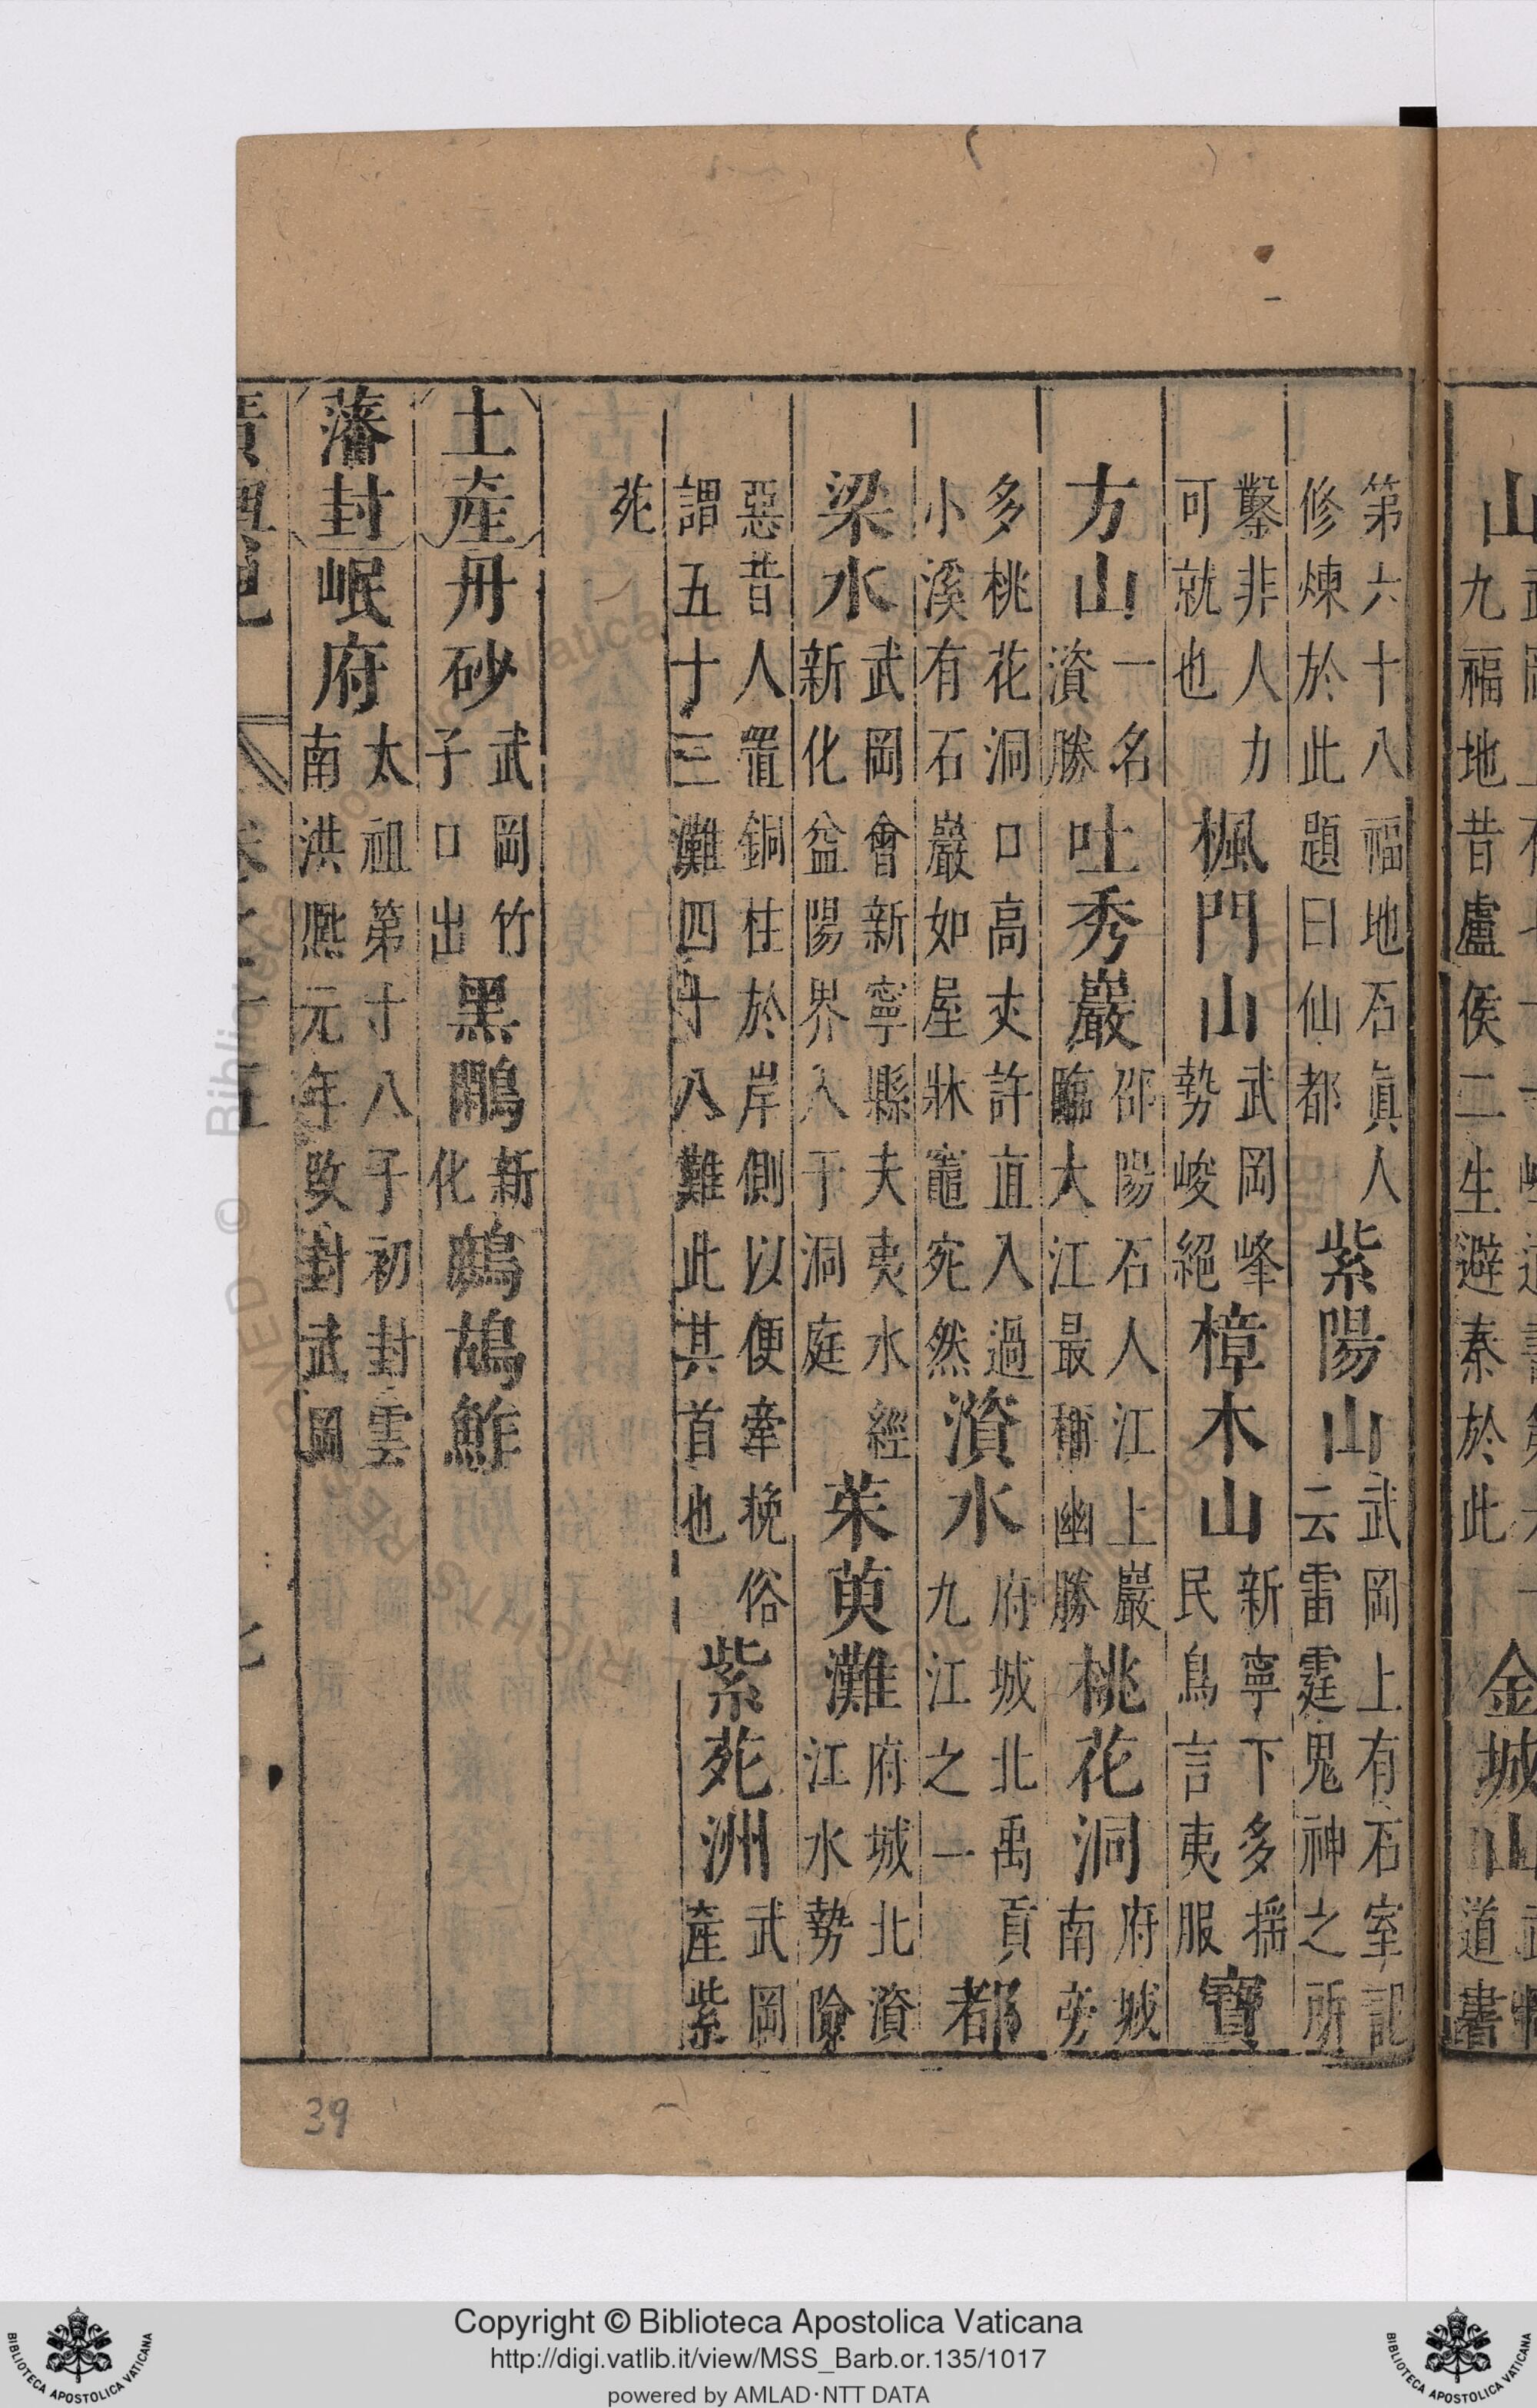 山
九福地昔盧侯二生避秦於此
金城山
道書
第六十八福地石眞人修煉於此題曰仙都紫陽山武岡上有石室記云雷霆鬼神之所
鑿非人力可就也楓門山武岡峰勢峻絕樟木山新寧下多猺民鳥言夷服寶
方山一名澬勝吐秀巖邵陽石人江上巖臨大江最稱幽勝桃花洞府城南旁
多桃花洞口高丈許直入過小溪有石巖如屋牀竈宛然澬水府城北禹貢九江之一都
梁水武岡會新寧縣夫夷水經新化益陽界入于洞庭茱萸灘府城北澬江水勢險
惡昔人置銅柱於岸側以便牽挽俗謂五十三灘四十八難此其首也紫苑洲武岡產紫
苑
土產丹砂武岡竹子口出黑鷳新化鷓鴣鮓
藩封岷府太祖第十八子初封雲南洪熙元年改封武岡
39
Copyright © Biblioteca Apostolica Vaticana
http://digi.vatlib.it/view/MSS_Barb.or.135/1017
powered by AMLAD·NTT DATA
BIBLIOTECA APOSTOLICA VATICANA
BIBLIOTECA APOSTOLICA VATICANA